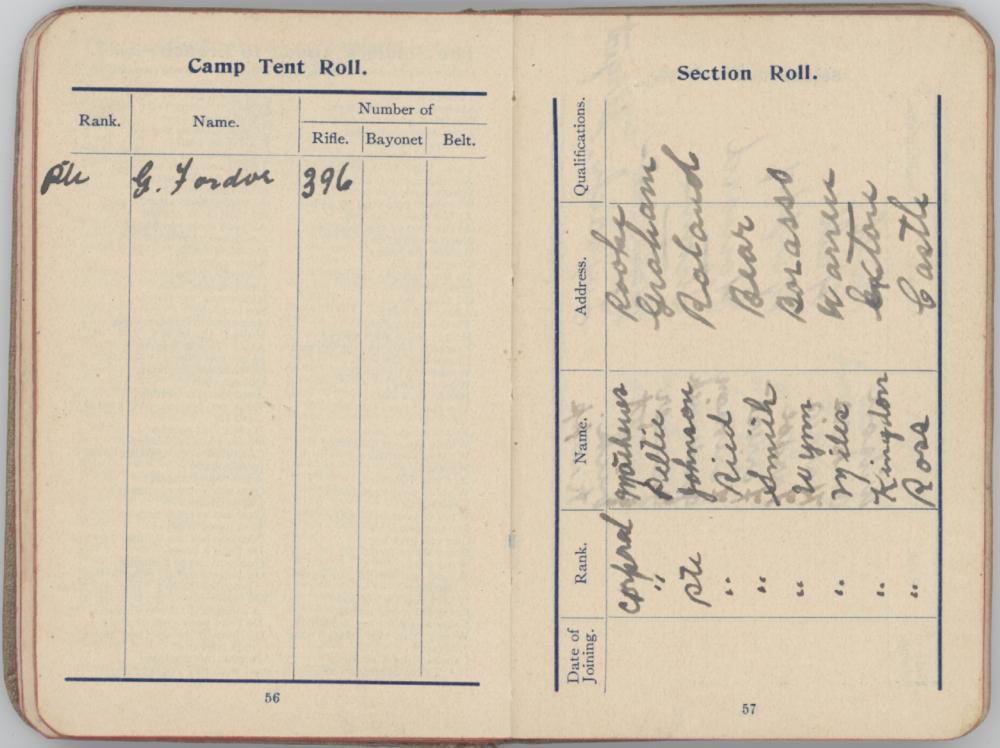 Camp Tent Roll.
Rank. Name. Number of
Rifle. Bayonet Belt.
Pte G. Fordve 396
56
Section Roll.
Date of Joining. Rank. Name. Address. Qualifications.
Corpral Mathews Rooke
" Peltie Graham
Pte Johnson Roland
" Ried Bear
" Smith Brasso
" Wynn Warren
" Miles Exton
" Kingdon Castle
" Ross
57